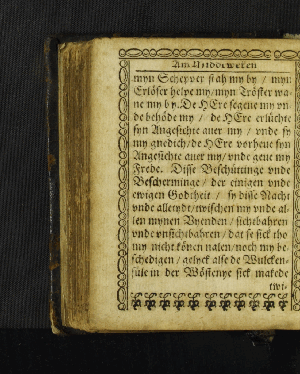 Am Middeweken
myn Schepper stah my by / myn
Erlöser helpe my / myn Tröster wa-
ne my by. De HEre segene my vn-
de behöde my / de HEre erlüchte
syn Angesichte auer my / vnde sy
my gnedich / de HEre vorheue syn
Angesichte auer my / vnde geue my
Frede. Disse Beschüttinge vnde
Bescherminge / der einigen vnde
ewigen Godtheit / sy düsse Nacht
vnde alletydt / twischen my vnde al-
len mynen Vyenden / sichtbahren
vnde vnsichtbahren / dat se sick tho
my nicht können nalen / noch my be-
schedigen / gelyck alse de Wulcken-
süle in der Wöstenye sick makede
twi-